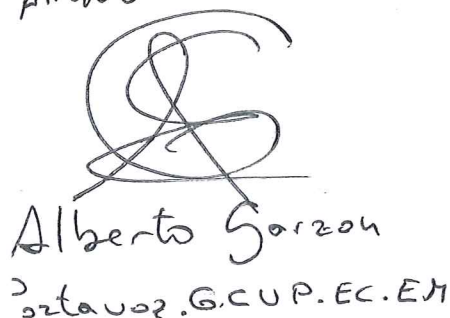 Alberto Garzon
Portavoz. G.CUP.EC.EM